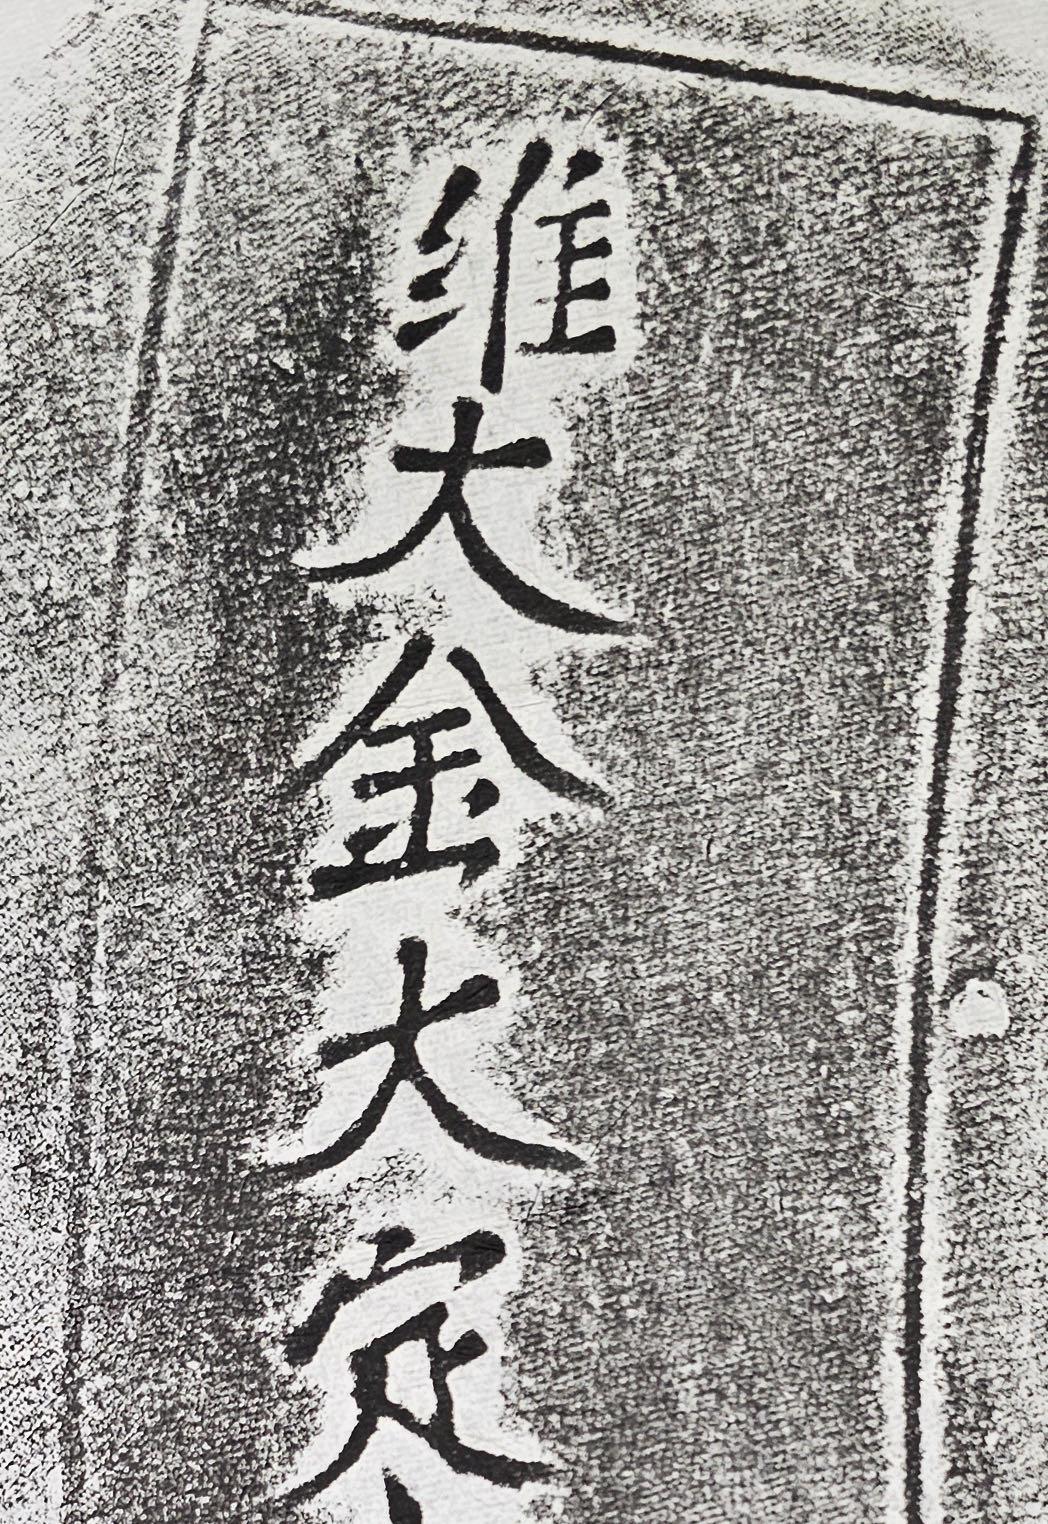 维大金大定